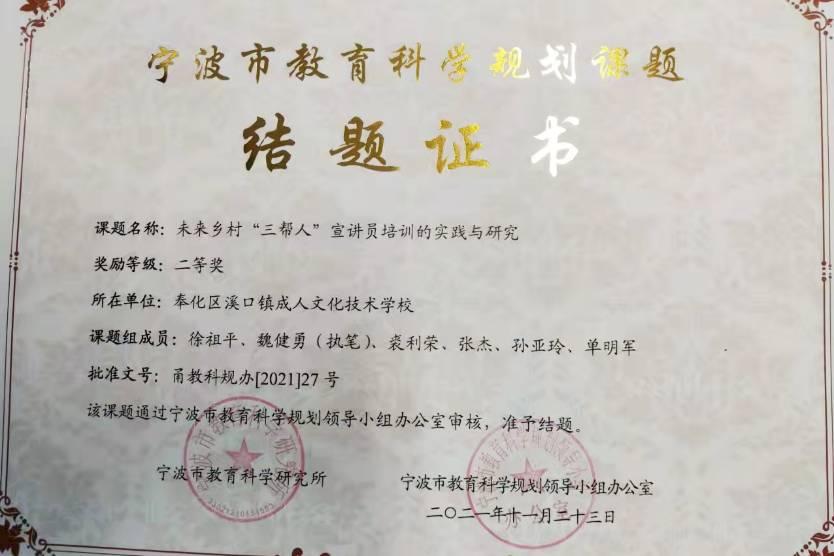 宁波市教育科学规划课题
结题证书
课题名称：未来乡村“三帮人”宣讲员培训的实践与研究
奖励等级：二等奖
所在单位：奉化区溪口镇成人文化技术学校
课题组成员：徐祖平、魏健勇（执笔）、裘利荣、张杰、孙亚玲、单明军
批准文号：甬教科规办[2021]27号
该课题通过宁波市教育科学规划领导小组办公室审核，准予结题。
宁波市教育科学研究所
宁波市教育科学规划领导小组办公室
二〇二一年十一月二十三日
宁波市教育科学研究所
宁波市教育科学规划领导小组
办公室